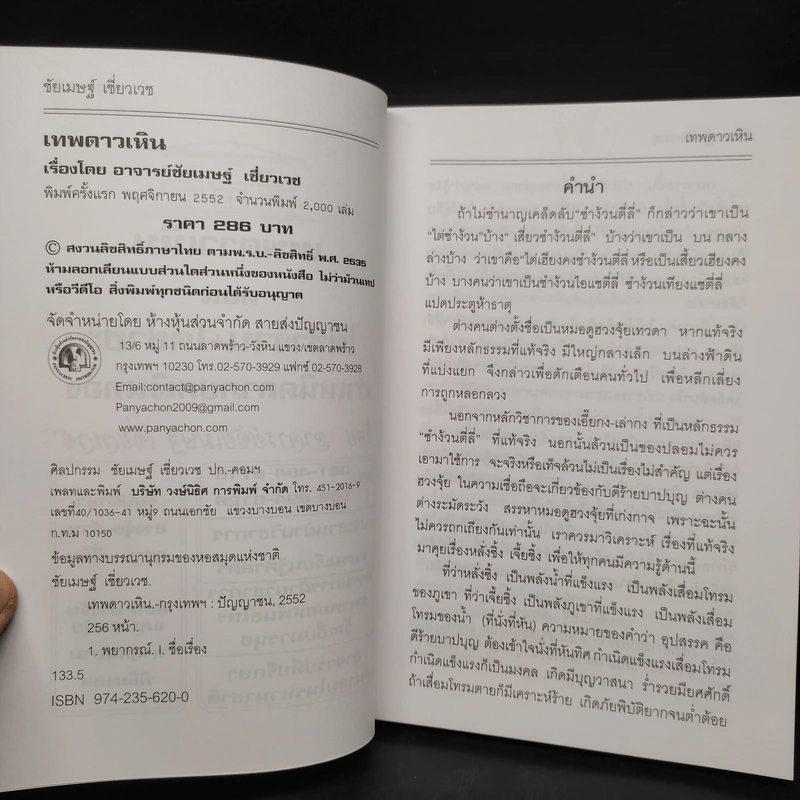 ชัยเมษฐ์ เชี่ยวเวช
เทพดาวเหิน
เรื่องโดย อาจารย์ชัยเมษฐ์ เชี่ยวเวช
พิมพ์ครั้งแรก พฤศจิกายน 2552 จำนวนพิมพ์ 2,000 เล่ม
ราคา 286 บาท
© สงวนลิขสิทธิ์ภาษาไทย ตามพ.ร.บ.-ลิขสิทธิ์ พ.ศ. 2535
ห้ามลอกเลียนแบบส่วนใดส่วนหนึ่งของหนังสือ ไม่ว่าม้วนเทป
หรือวีดีโอ สิ่งพิมพ์ทุกชนิดก่อนได้รับอนุญาต
จัดจำหน่ายโดย ห้างหุ้นส่วนจำกัด สายส่งปัญญาชน
13/6 หมู่ 11 ถนนลาดพร้าว-วังหิน แขวง/เขตลาดพร้าว
กรุงเทพฯ 10230 โทร.02-570-3929 แฟกซ์ 02-570-3928
Email:contact@panyachon.com
Panyachon2009@gmail.com
www.panyachon.com
ศิลปกรรม ชัยเมษฐ์ เชี่ยวเวช ปก.-คอมฯ
เพลทและพิมพ์ บริษัท วงษ์นิธิศ การพิมพ์ จำกัด โทร. 451-2016-9
เลขที่40/1036-41 หมู่9 ถนนเอกชัย แขวงบางบอน เขตบางบอน
ก.ท.ม 10150
ข้อมูลทางบรรณานุกรมของหอสมุดแห่งชาติ
ชัยเมษฐ์ เชี่ยวเวช.
เทพดาวเหิน.-กรุงเทพฯ : ปัญญาชน, 2552
256 หน้า.
1. พยากรณ์. I. ชื่อเรื่อง
133.5
ISBN 974-235-620-0
เทพดาวเหิน
คำนำ
ถ้าไม่ชำนาญเคล็ดลับ"ซำง้วนตี่ลี่" ก็กล่าวว่าเขาเป็น
"ไต่ซำง้วน"บ้าง" เสี่ยวซำง้วนตี่ลี่" บ้างว่าเขาเป็น บน กลาง
ล่างบ้าง ว่าเขาคือ"ไต่เฮียงคงซำง้วนตี่ลี่ หรือเป็นเสี้ยวเฮียงคง
บ้าง บางคนว่าเขาเป็นซำง้วนไอแซตี่ลี่ ซำง้วนเทียงแซตี่ลี่
แปดประตูห้าธาตุ
ต่างคนต่างตั้งชื่อเป็นหมอดูฮวงจุ้ยเทวดา หากแท้จริง
มีเพียงหลักธรรมที่แท้จริง มีใหญ่กลางเล็ก บนล่างฟ้าดิน
ที่แบ่งแยก จึงกล่าวเพื่อตักเตือนคนทั่วไป เพื่อหลีกเลี่ยง
การถูกหลอกลวง
นอกจากหลักวิชาการของเอี๊ยกง-เล่ากง ที่เป็นหลักธรรม
"ซำง้วนตี่ลี่" ที่แท้จริง นอกนั้นล้วนเป็นของปลอมไม่ควร
เอามาใช้การ จะจริงหรือเท็จล้วนไม่เป็นเรื่องไม่สำคัญ แต่เรื่อง
ฮวงจุ้ย ในความเชื่อถือจะเกี่ยวข้องกับดีร้ายบาปบุญ ต่างคน
ต่างระมัดระวัง สรรหาหมอดูฮวงจุ้ยที่เก่งกาจ เพราะฉะนั้น
ไม่ควรถกเถียงกันเท่านั้น เราควรมาวิเคราะห์ เรื่องที่แท้จริง
มาคุยเรื่องหลั่งซิ้ง เจี้ยซิ้ง เพื่อให้ทุกคนมีความรู้ด้านนี้
ที่ว่าหลั่งซิ้ง เป็นพลังน้ำที่แข็งแรง เป็นพลังเสื่อมโทรม
ของภูเขา ที่ว่าเจี้ยซิ้ง เป็นพลังภูเขาที่แข็งแรง เป็นพลังเสื่อม
โทรมของน้ำ (ที่นั่งที่หัน) ความหมายของคำว่า อุปสรรค คือ
ดีร้ายบาปบุญ ต้องเข้าใจนั่งที่หันทิศ กำเนิดแข็งแรงเสื่อมโทรม
กำเนิดแข็งแรงก็เป็นมงคล เกิดมีบุญวาสนา ร่ำรวยมียศศักดิ์
ถ้าเสื่อมโทรมตายก็มีเคราะห์ร้าย เกิดภัยพิบัติยากจนต่ำต้อย